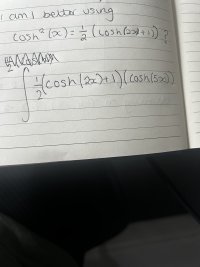 am I better using
cosh²(x) = 1/2 (cosh(2x)+1)?
∫ 1/2 (cosh(2x)+1)(cosh(5x))